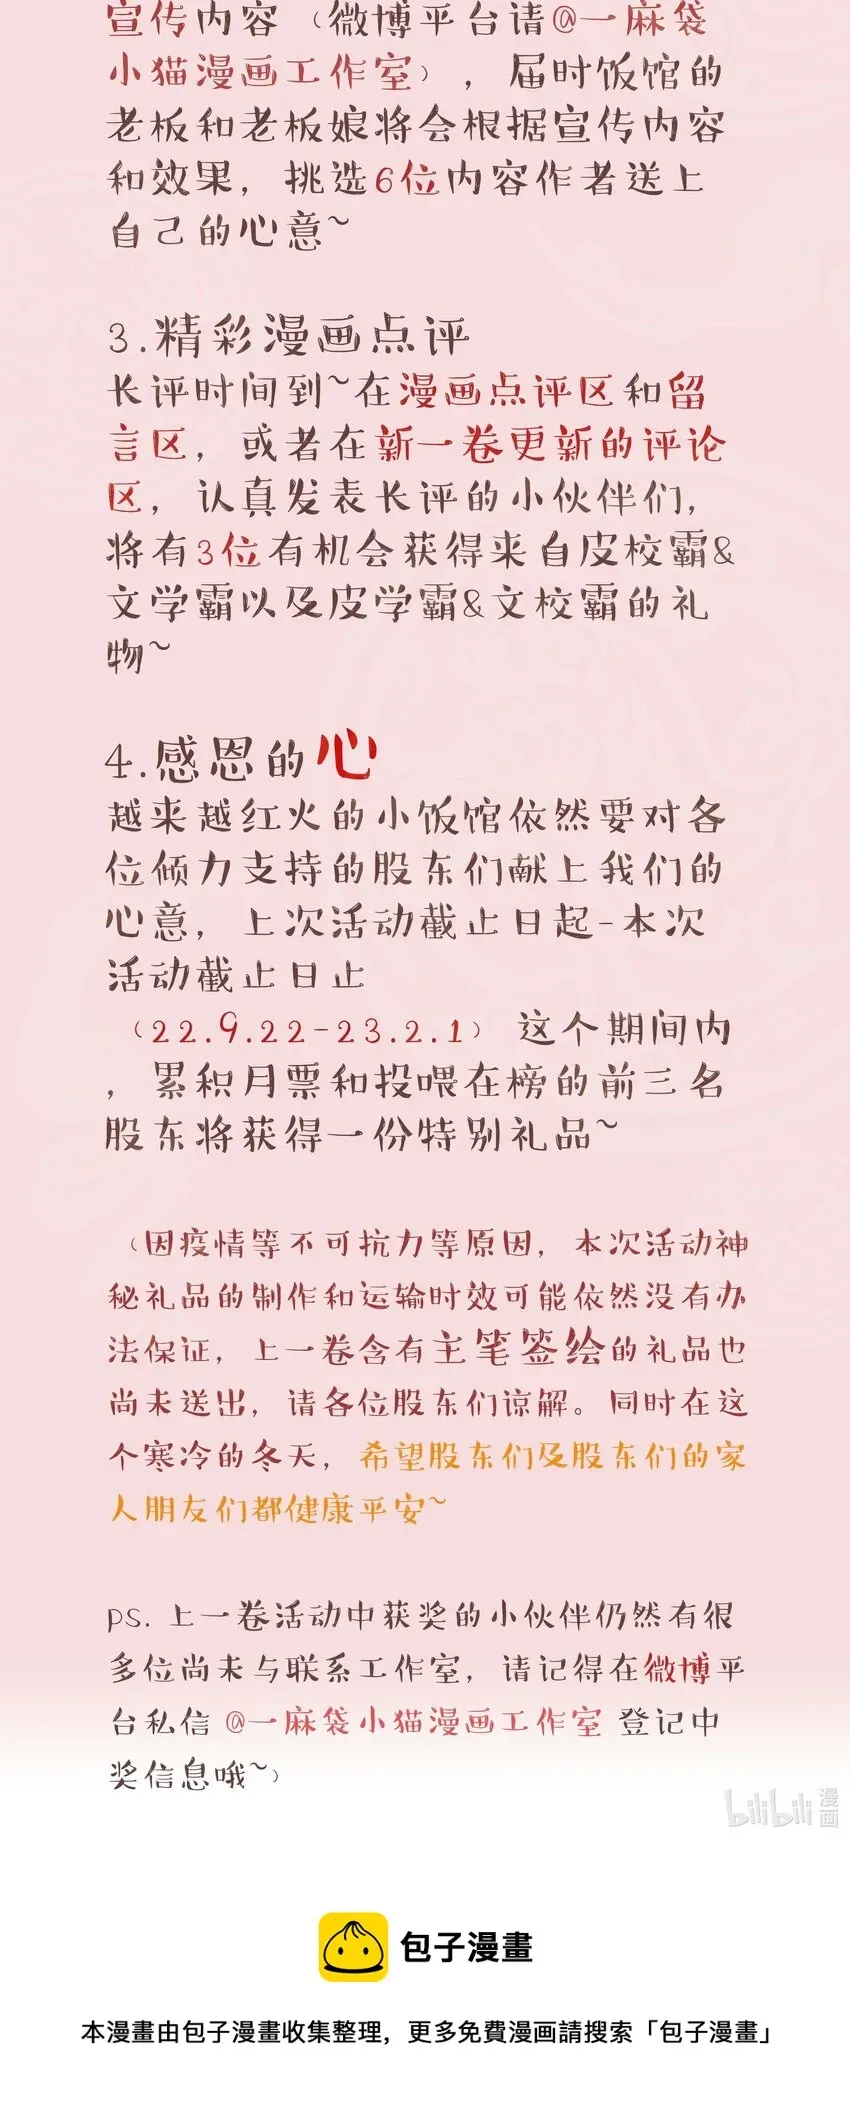 宣传内容（微博平台请@一麻袋
小猫漫画工作室），届时饭馆的
老板和老板娘将会根据宣传内容
和效果，挑选6位内容作者送上
自己的心意~
3.精彩漫画点评
长评时间到~在漫画点评区和留
言区，或者在新一卷更新的评论
区，认真发表长评的小伙伴们，
将有3位有机会获得来自皮校霸&
文学霸以及皮学霸&文校霸的礼
物~
4.感恩的心
越来越红火的小饭馆依然要对各
位倾力支持的股东们献上我们的
心意，上次活动截止日起-本次
活动截止日止
（22.9.22-23.2.1）这个期间内
，累积月票和投喂在榜的前三名
股东将获得一份特别礼品~
（因疫情等不可抗力等原因，本次活动神
秘礼品的制作和运输时效可能依然没有办
法保证，上一卷含有主笔签绘的礼品也
尚未送出，请各位股东们谅解。同时在这
个寒冷的冬天，希望股东们及股东们的家
人朋友们都健康平安~
ps. 上一卷活动中获奖的小伙伴仍然有很
多位尚未与联系工作室，请记得在微博平
台私信 @一麻袋小猫漫画工作室 登记中
奖信息哦~）
bilibili 漫画
包子漫畫
本漫畫由包子漫畫收集整理，更多免費漫画請搜索「包子漫畫」